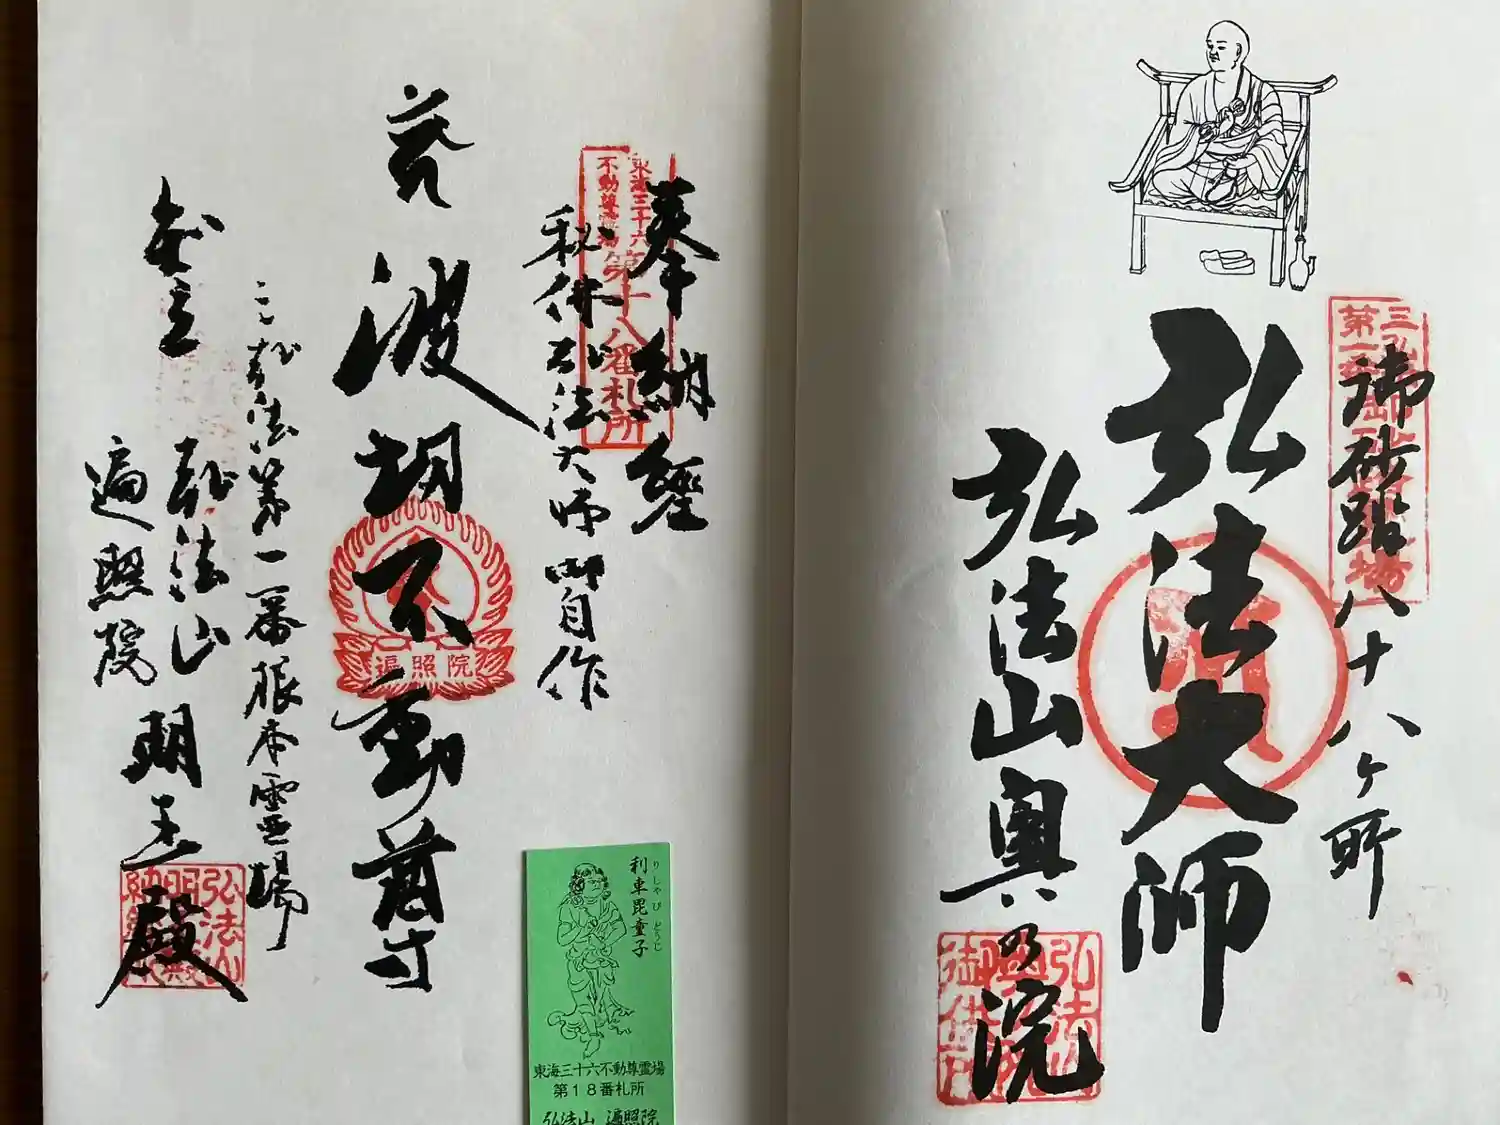 三弘法
第一番御砂踏霊場
御砂踏八十八ヶ所
弘法大師
弘法山奥の院
弘法山
奥の院
東海三十六
不動尊霊場
第十八番札所
奉納経
秘佛弘法大師御自作
波切不動尊
遍照院
三弘法第一番根本霊場
弘法山
遍照院
明王殿
弘法山
明王殿
利車毘童子
りしゃびどうじ
東海三十六不動尊霊場
第18番札所
弘法山 遍照院